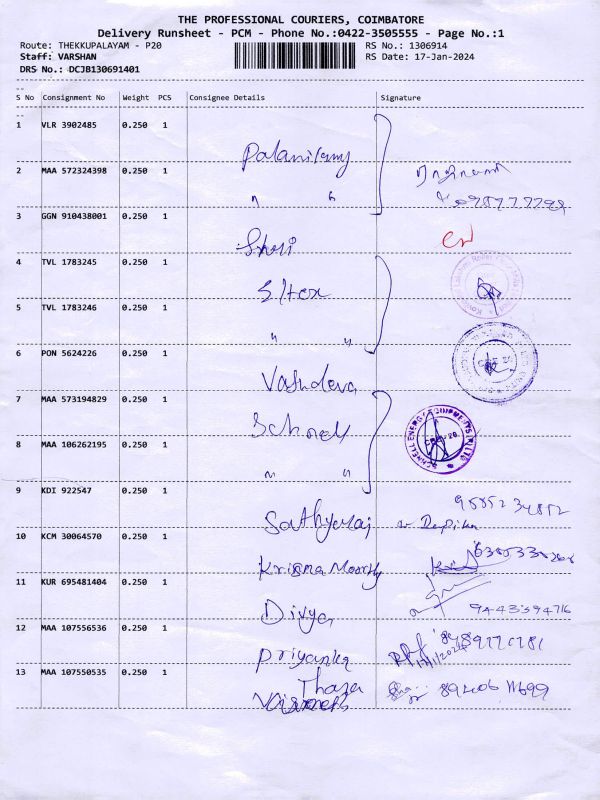 THE PROFESSIONAL COURIERS, COIMBATORE
Delivery Runsheet - PCM - Phone No.:0422-3505555 - Page No.:1
Route: THEKKUPALAYAM - P20 RS No.: 1306914
Staff: VARSHAN RS Date: 17-Jan-2024
DRS No.: DCJB130691401
S No Consignment No Weight PCS Consignee Details Signature
1 VLR 3902485 0.250 1
Palanisamy
2 MAA 572324398 0.250 1
" "
3 GGN 910438001 0.250 1
Shri
4 TVL 1783245 0.250 1
Eltex
5 TVL 1783246 0.250 1
" "
6 PON 5624226 0.250 1
Vasudeva
7 MAA 573194829 0.250 1
Schnell
8 MAA 106262195 0.250 1
" "
SCHNELL ENERGY EQUIPMENTS
9 KDI 922547 0.250 1
Sathyaraj Deepika
10 KCM 30064570 0.250 1
Krishna Moorthy
11 KUR 695481404 0.250 1
Divya 9443394716
12 MAA 107556536 0.250 1
Priyanka
13 MAA 107550535 0.250 1